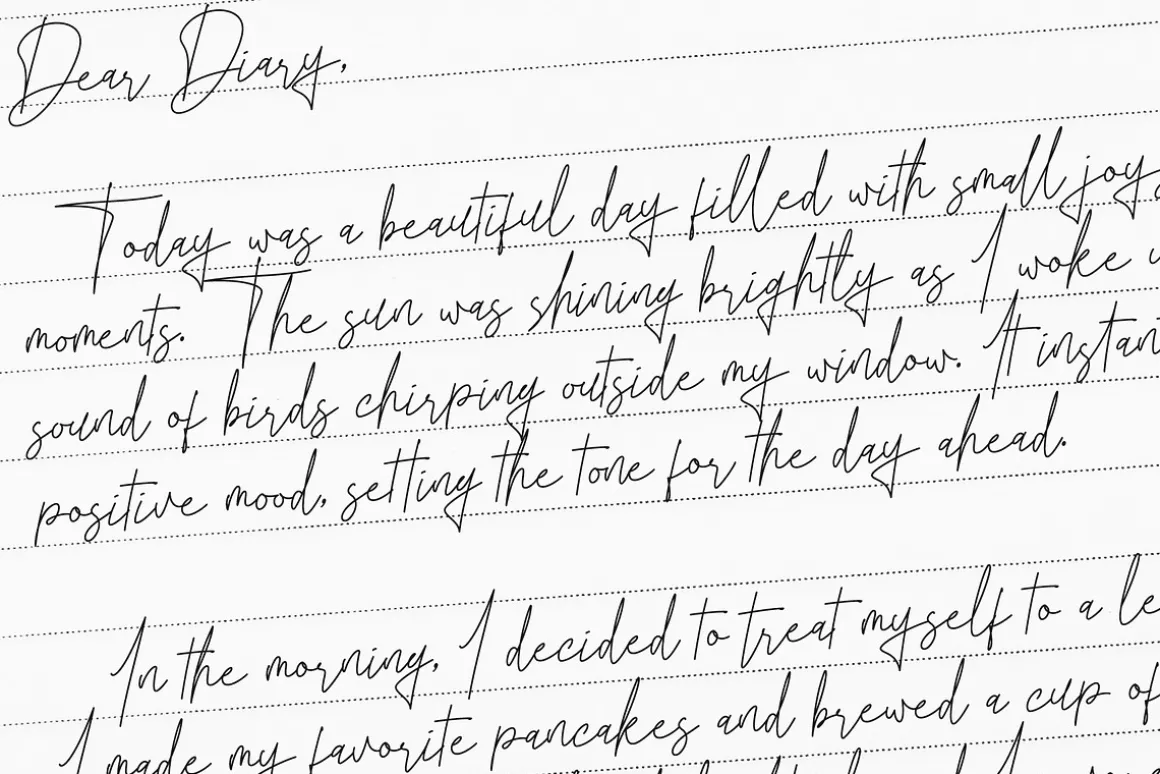 Dear Diary,
Today was a beautiful day filled with small joy
moments. The sun was shining brightly as I woke
sound of birds chirping outside my window. It instan
positive mood, setting the tone for the day ahead.
In the morning, I decided to treat myself to a le
I made my favorite pancakes and brewed a cup of